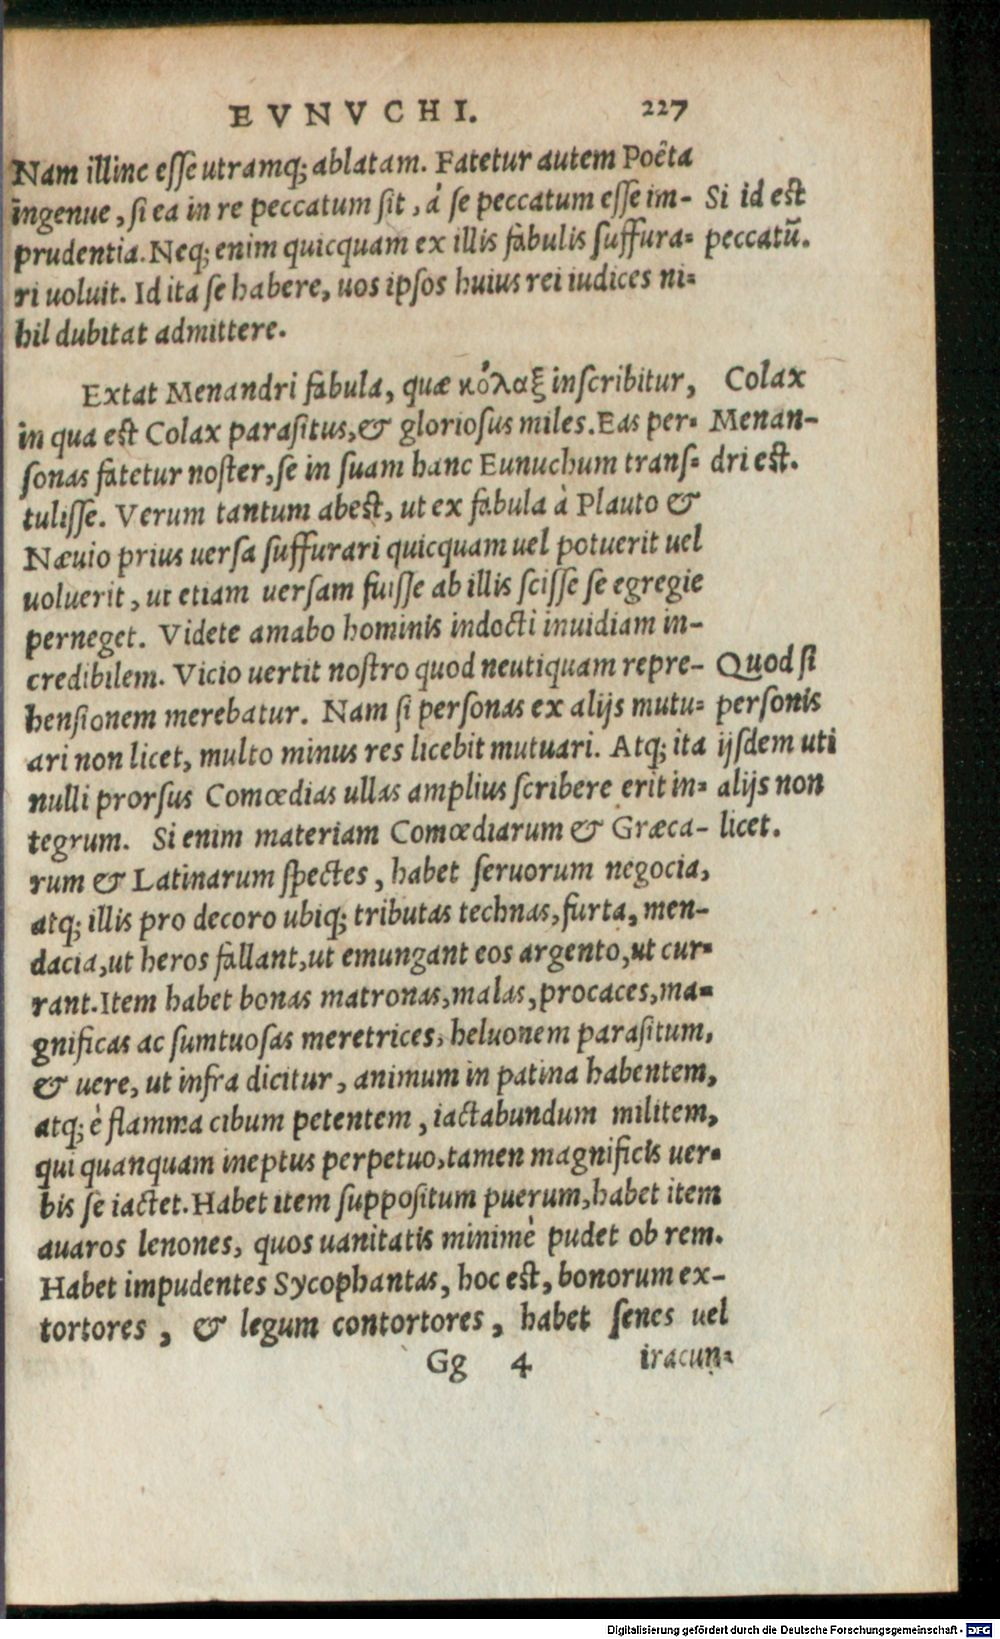 EVNVCHI. 227
Nam illinc eſſe utramq; ablatam. Fatetur autem Poêta
ingenue, ſi ea in re peccatum ſit, á ſe peccatum eſſe im- Si id est
prudentia. Neq; enim quicquam ex illis fabulis ſuffura= peccatū.
ri uoluit. Id ita ſe habere, uos ipſos huius rei iudices ni=
hil dubitat admittere.
Extat Menandri fabula, quæ κόλαξ inſcribitur, Colax
in qua est Colax paraſitus, & glorioſus miles. Eas per= Menan-
ſonas fatetur noſter, ſe in ſuam hanc Eunuchum tranſ= dri est.
tuliſſe. Verum tantum abest, ut ex fabula à Plauto &
Næuio prius uerſa ſuffurari quicquam uel potuerit uel
uoluerit, ut etiam uerſam fuiſſe ab illis ſciſſe ſe egregie
perneget. Videte amabo hominis indocti inuidiam in-
credibilem. Vicio uertit noſtro quod neutiquam repre- Quod ſi
henſionem merebatur. Nam ſi perſonas ex alijs mutu= perſonis
ari non licet, multo minus res licebit mutuari. Atq; ita ijſdem uti
nulli prorſus Comœdias ullas amplius ſcribere erit in= alijs non
tegrum. Si enim materiam Comœdiarum & Græca- licet.
rum & Latinarum ſpectes, habet ſeruorum negocia,
atq; illis pro decoro ubiq; tributas technas, furta, men-
dacia, ut heros fallant, ut emungant eos argento, ut cur=
rant. Item habet bonas matronas, malas, procaces, ma=
gnificas ac ſumtuoſas meretrices, heluonem paraſitum,
& uere, ut infra dicitur, animum in patina habentem,
atq; è flamma cibum petentem, iactabundum militem,
qui quanquam ineptus perpetuo, tamen magnificis uer=
bis ſe iactet. Habet item ſuppoſitum puerum, habet item
auaros lenones, quos uanitatis minimè pudet ob rem.
Habet impudentes Sycophantas, hoc est, bonorum ex-
tortores, & legum contortores, habet ſenes uel
Gg 4 iracun=
Digitalisierung gefördert durch die Deutsche Forschungsgemeinschaft - DFG